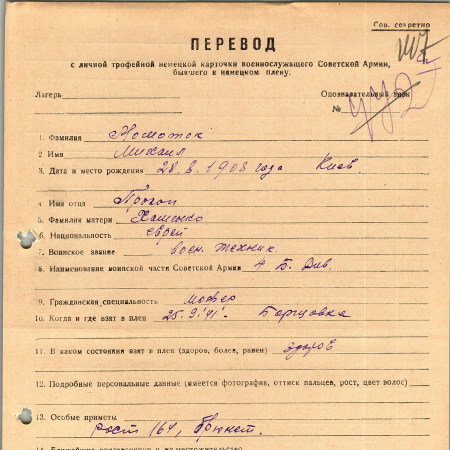 Сов. секретно
ПЕРЕВОД
с личной трофейной немецкой карточки военнослужащего Советской Армии,
бывшего в немецком плену.
Лагерь Опознавательный знак
№
1. Фамилия Момоток
2 Имя Михаил
3. Дата и место рождения 28.8.1908 года Киев.
4. Имя отца Прогоп
5. Фамилия матери Хащенко
6. Национальность еврей
7. Воинское звание воен. техник.
8. Наименование воинской части Советской Армии 4 Б. Див.
9. Гражданская специальность шофер
10. Когда и где взят в плен 25.9.41г. Борщовка
11. В каком состоянии взят в плен (здоров, болен, ранен) здоров
12. Подробные персональные данные (имеется фотография, оттиск пальцев, рост, цвет волос)
13. Особые приметы
рост 164, брюнет.